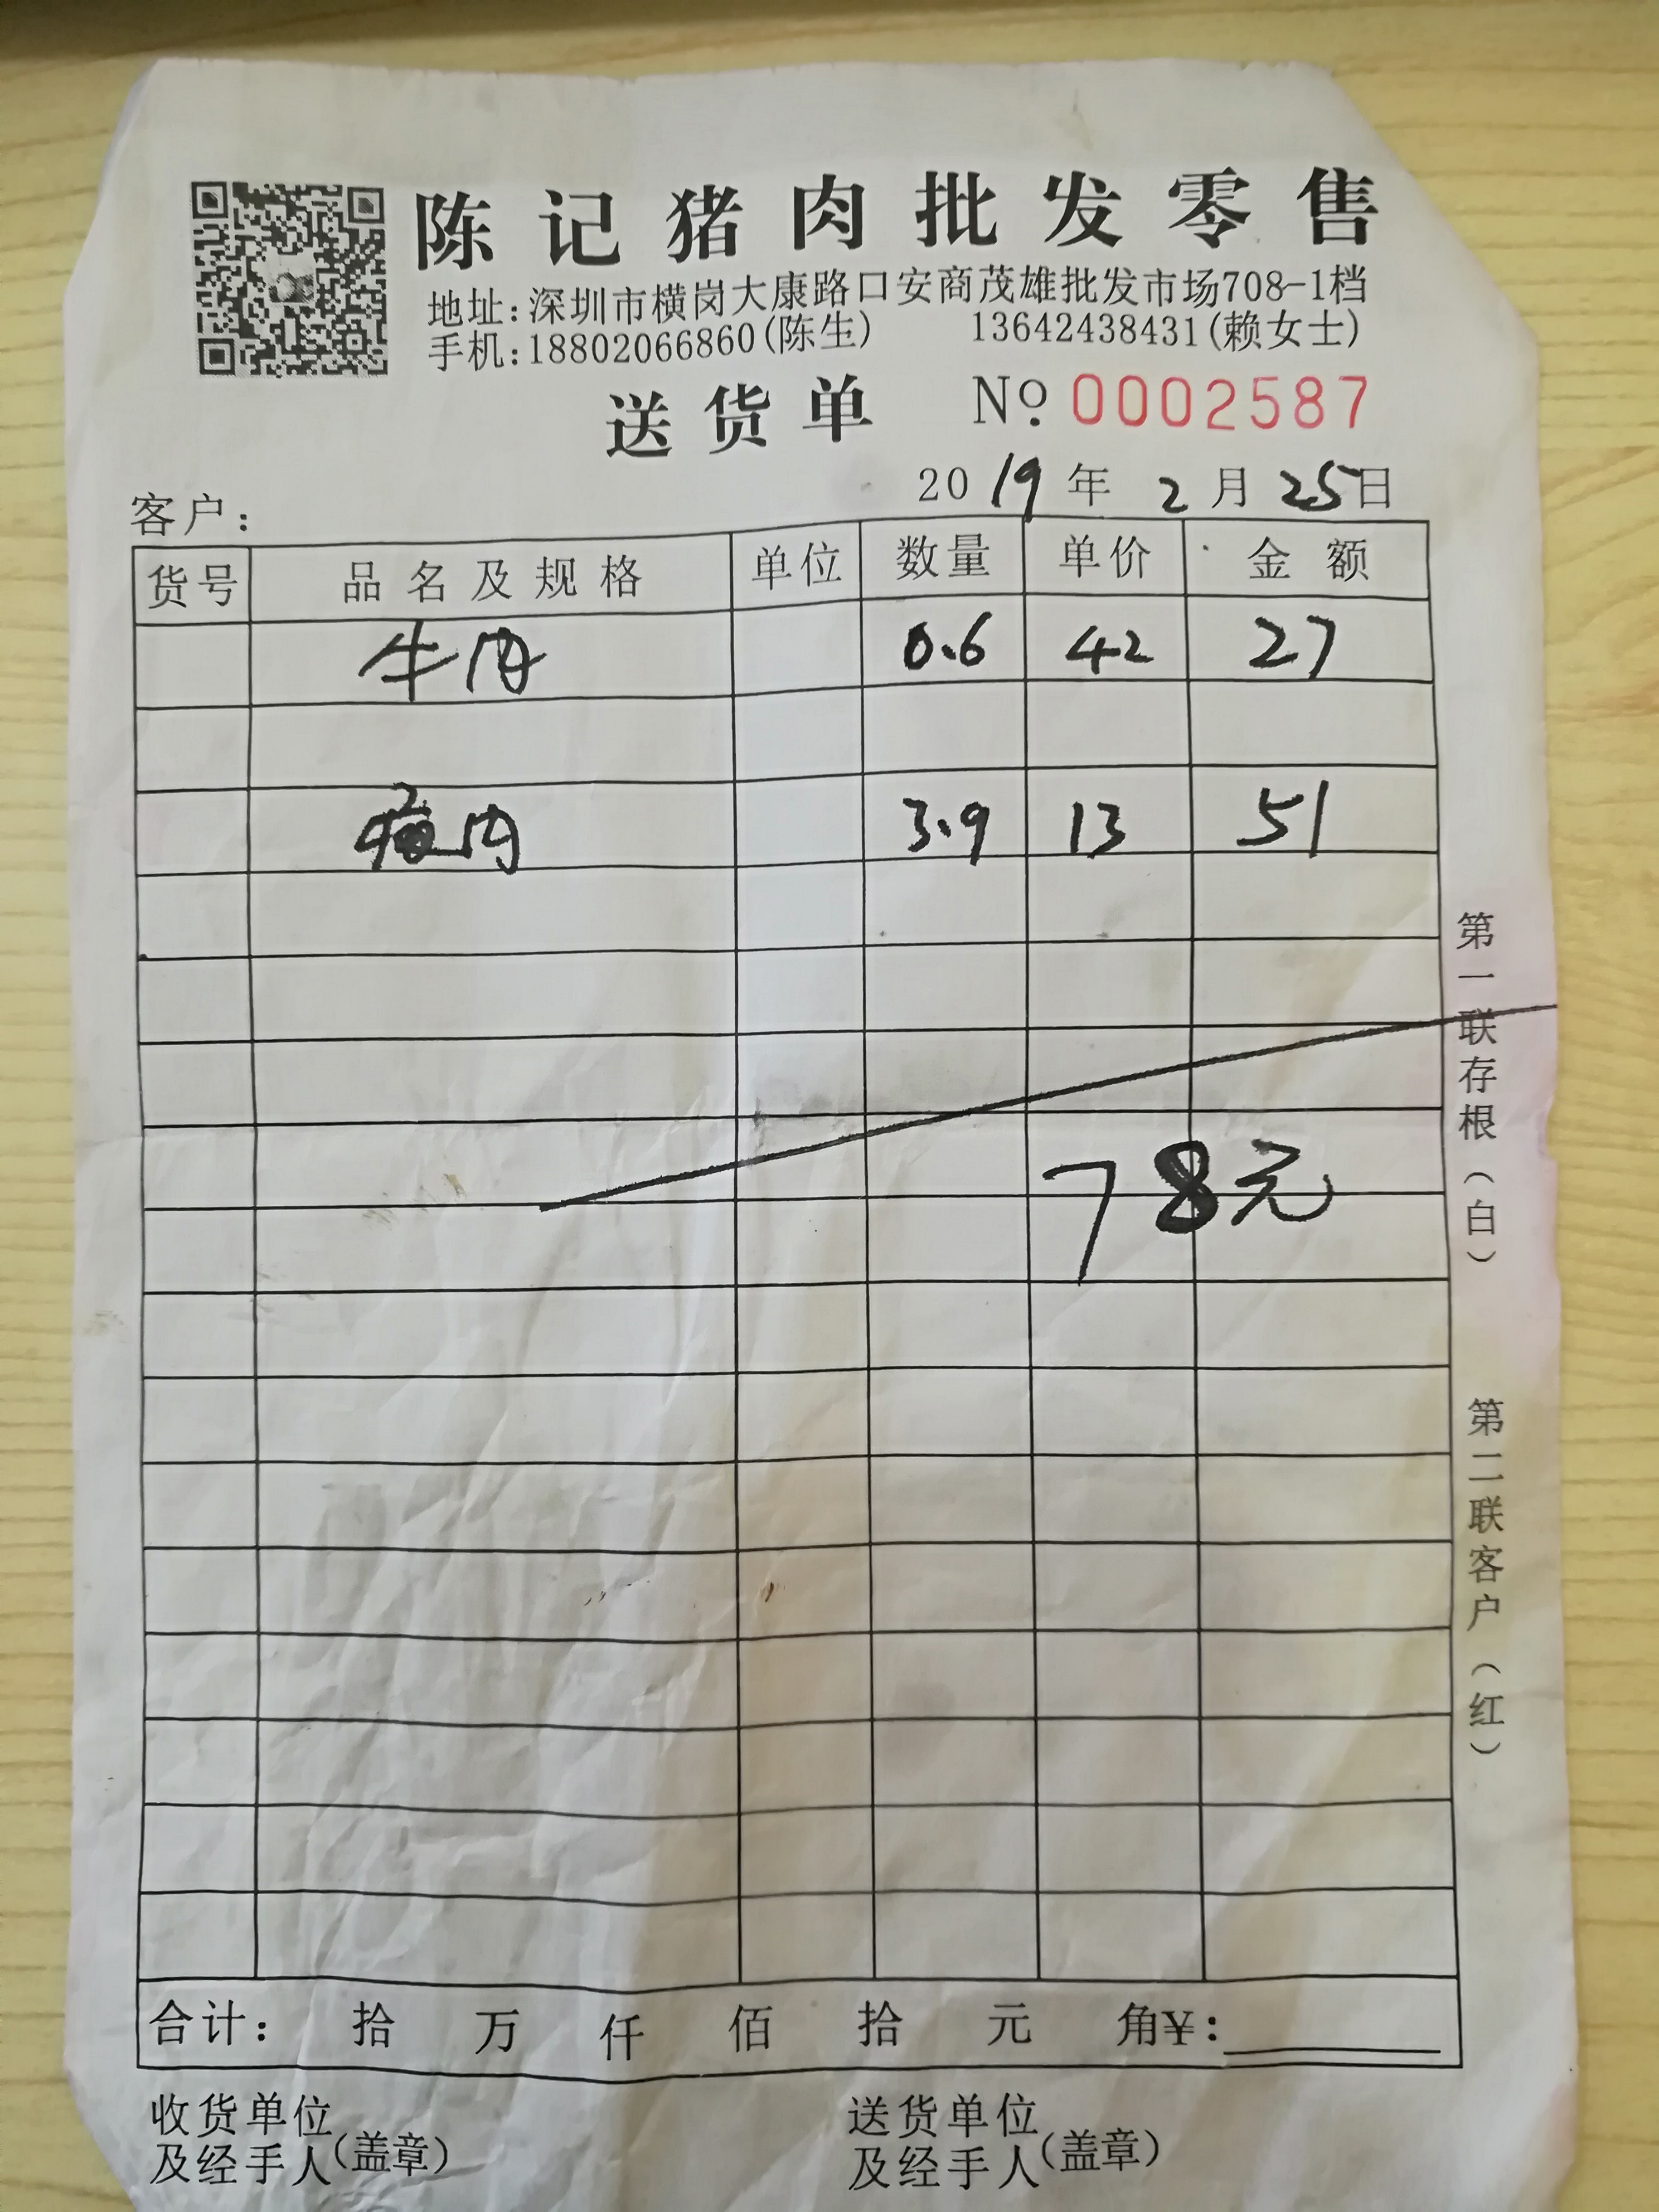 陈记猪肉批发零售
地址:深圳市横岗大康路口安商茂雄批发市场708-1档
手机:18802066860(陈生) 13642438431(赖女士)
送货单 No. 0002587
2019年2月25日
客户:
货号 品名及规格 单位 数量 单价 金额
牛肉 0.6 42 27
瘦肉 3.9 13 51
78元
合计: 拾 万 仟 佰 拾 元 角¥:
收货单位及经手人(盖章)
送货单位及经手人(盖章)
第一联存根(白)
第二联客户(红)